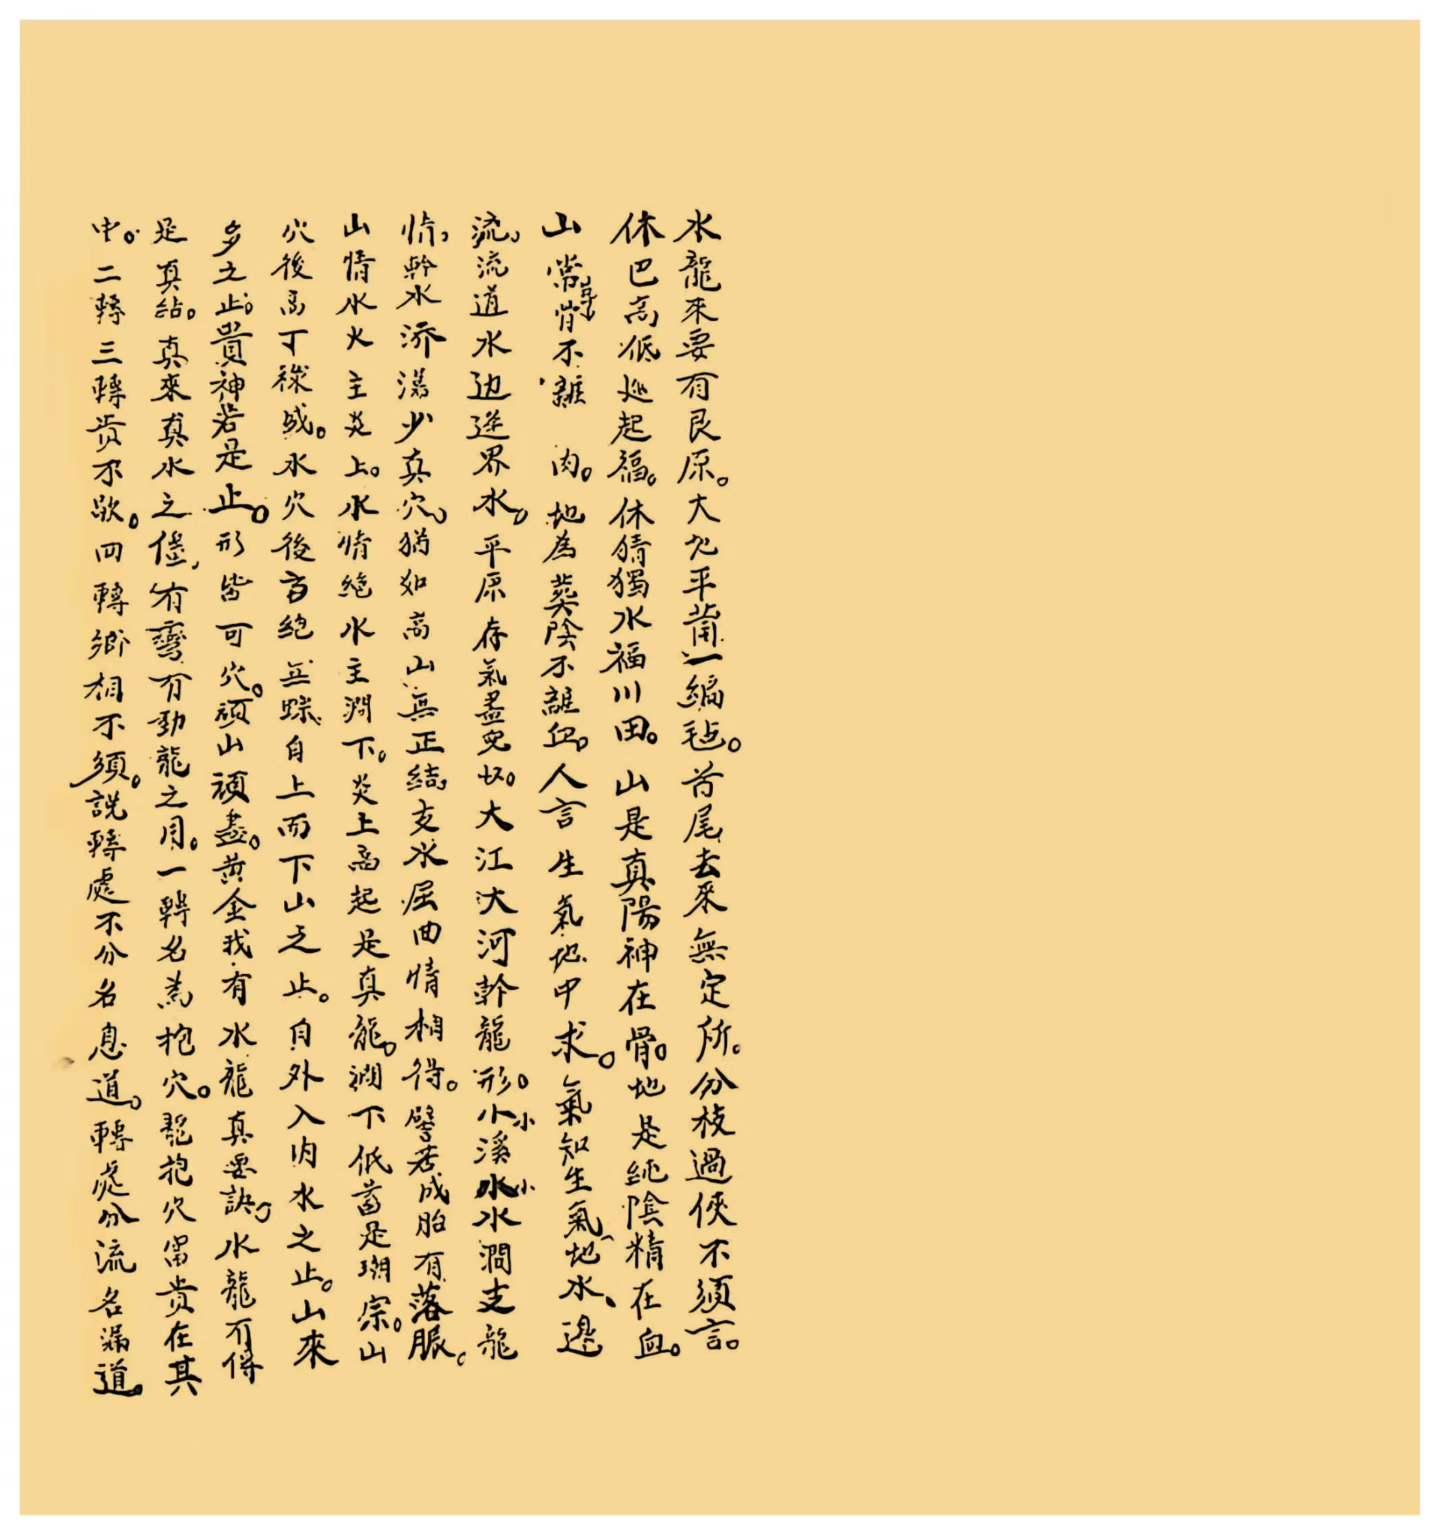 水龍來要有艮原。大凡平莆一編毡。首尾去來無定所。分枝過俠不須言。
休巴高低起福。休猜獨水福川田。山是真陽神在骨。地是純陰精在血。
山常骨不離肉。地為葬陰不離血。人言生氣地中求。氣知生氣地水邊
流。流道水边逆界水。平原存氣盡切。大江大河幹龍形。小溪水水澗支龍
情。幹水少真穴。猶如高山無正結。支水屈曲情相得。譬若成胎有落脤。
山情水火主炎上。水情絶水主澗下。炎上高起是真龍。澗下低是宗。山
穴後高丁禄成。水穴後高絶無踪。自上而下山之止。自外入内水之止。山來
多之止。貴神若是止。形皆可穴。頑山頑盡。黄金我有水龍真要訣。水龍有得
是真結。真來真水之僅，有彎有勁龍之用。一轉名為抱穴。龍抱穴富贵在其
中。二轉三轉贵不歇。四轉鄉相不須。説轉處不分名息道。轉處分流名漏道。